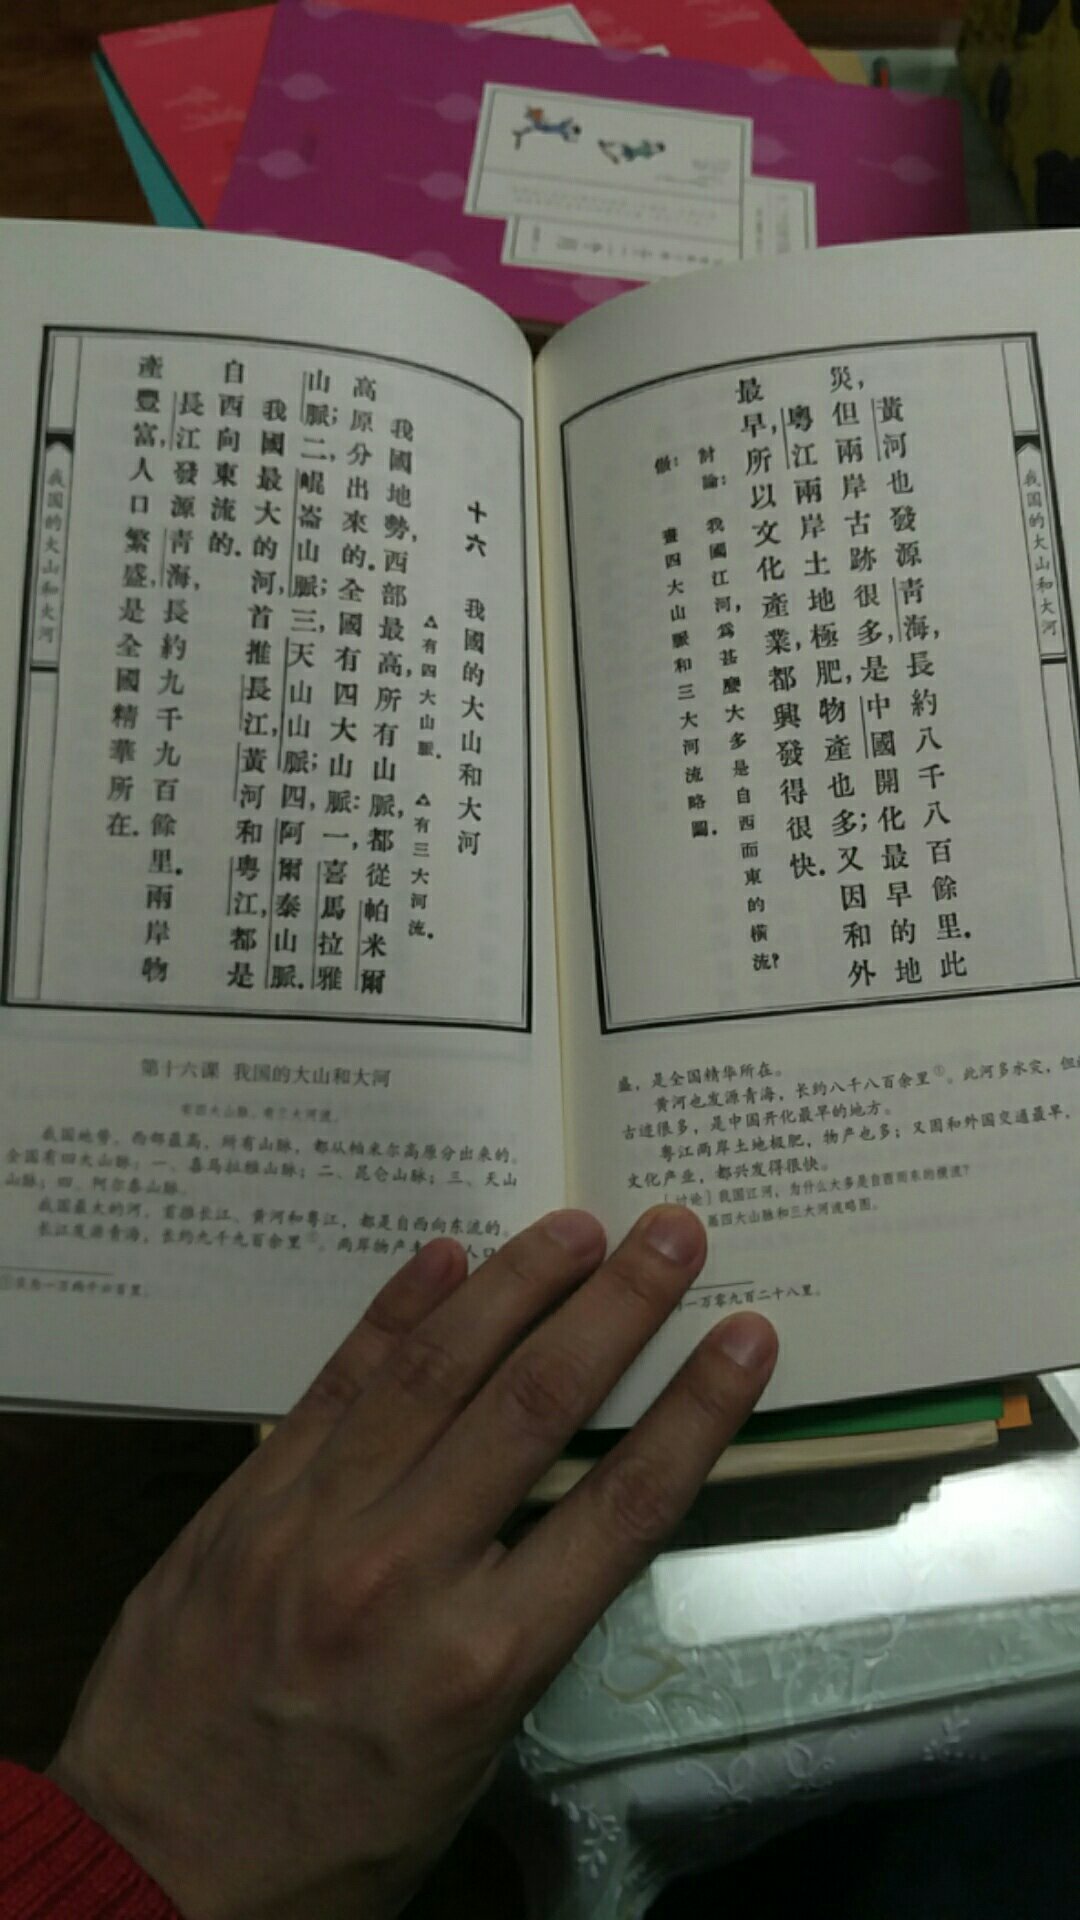 我国的大山和大河
十六 我國的大山和大河
△有四大山脈．△有三大河流．
我國地勢，西部最高，所有山脈，都從帕米爾
高原分出來的．全國有四大山脈：一，喜馬拉雅
山脈；二，崐崙山脈；三，天山山脈；四，阿爾泰山脈．
我國最大的河，首推長江，黃河和粵江，都是
自西向東流的．
長江發源青海，長約九千九百餘里．兩岸物
產豐富，人口繁盛，是全國精華所在．
第十六课 我国的大山和大河
有四大山脉。有三大河流。
我国地势，西部最高，所有山脉，都从帕米尔高原分出来的。
全国有四大山脉：一、喜马拉雅山脉；二、昆仑山脉；三、天山
山脉；四、阿尔泰山脉。
我国最大的河，首推长江、黄河和粤江，都是自西向东流的。
长江发源青海，长约九千九百余里①。两岸物产 人口
我国的大山和大河
黃河也發源青海，長約八千八百餘里．此
災，但兩岸古跡很多，是中國開化最早的地
粵江兩岸土地極肥，物產也多；又因和外
最早，所以文化產業，都興發得很快．
討論：我國江河，爲甚麼大多是自西而東的橫流？
做：畫四大山脈和三大河流略圖．
盛，是全国精华所在。
黄河也发源青海，长约八千八百余里①。此河多水灾，但
古迹很多，是中国开化最早的地方。
粤江两岸土地极肥，物产也多；又因和外国交通最早，
文化产业，都兴发得很快。
［讨论］我国江河，为什么大多是自西而东的横流？
画四大山脉和三大河流略图。
一万零九百二十八里。